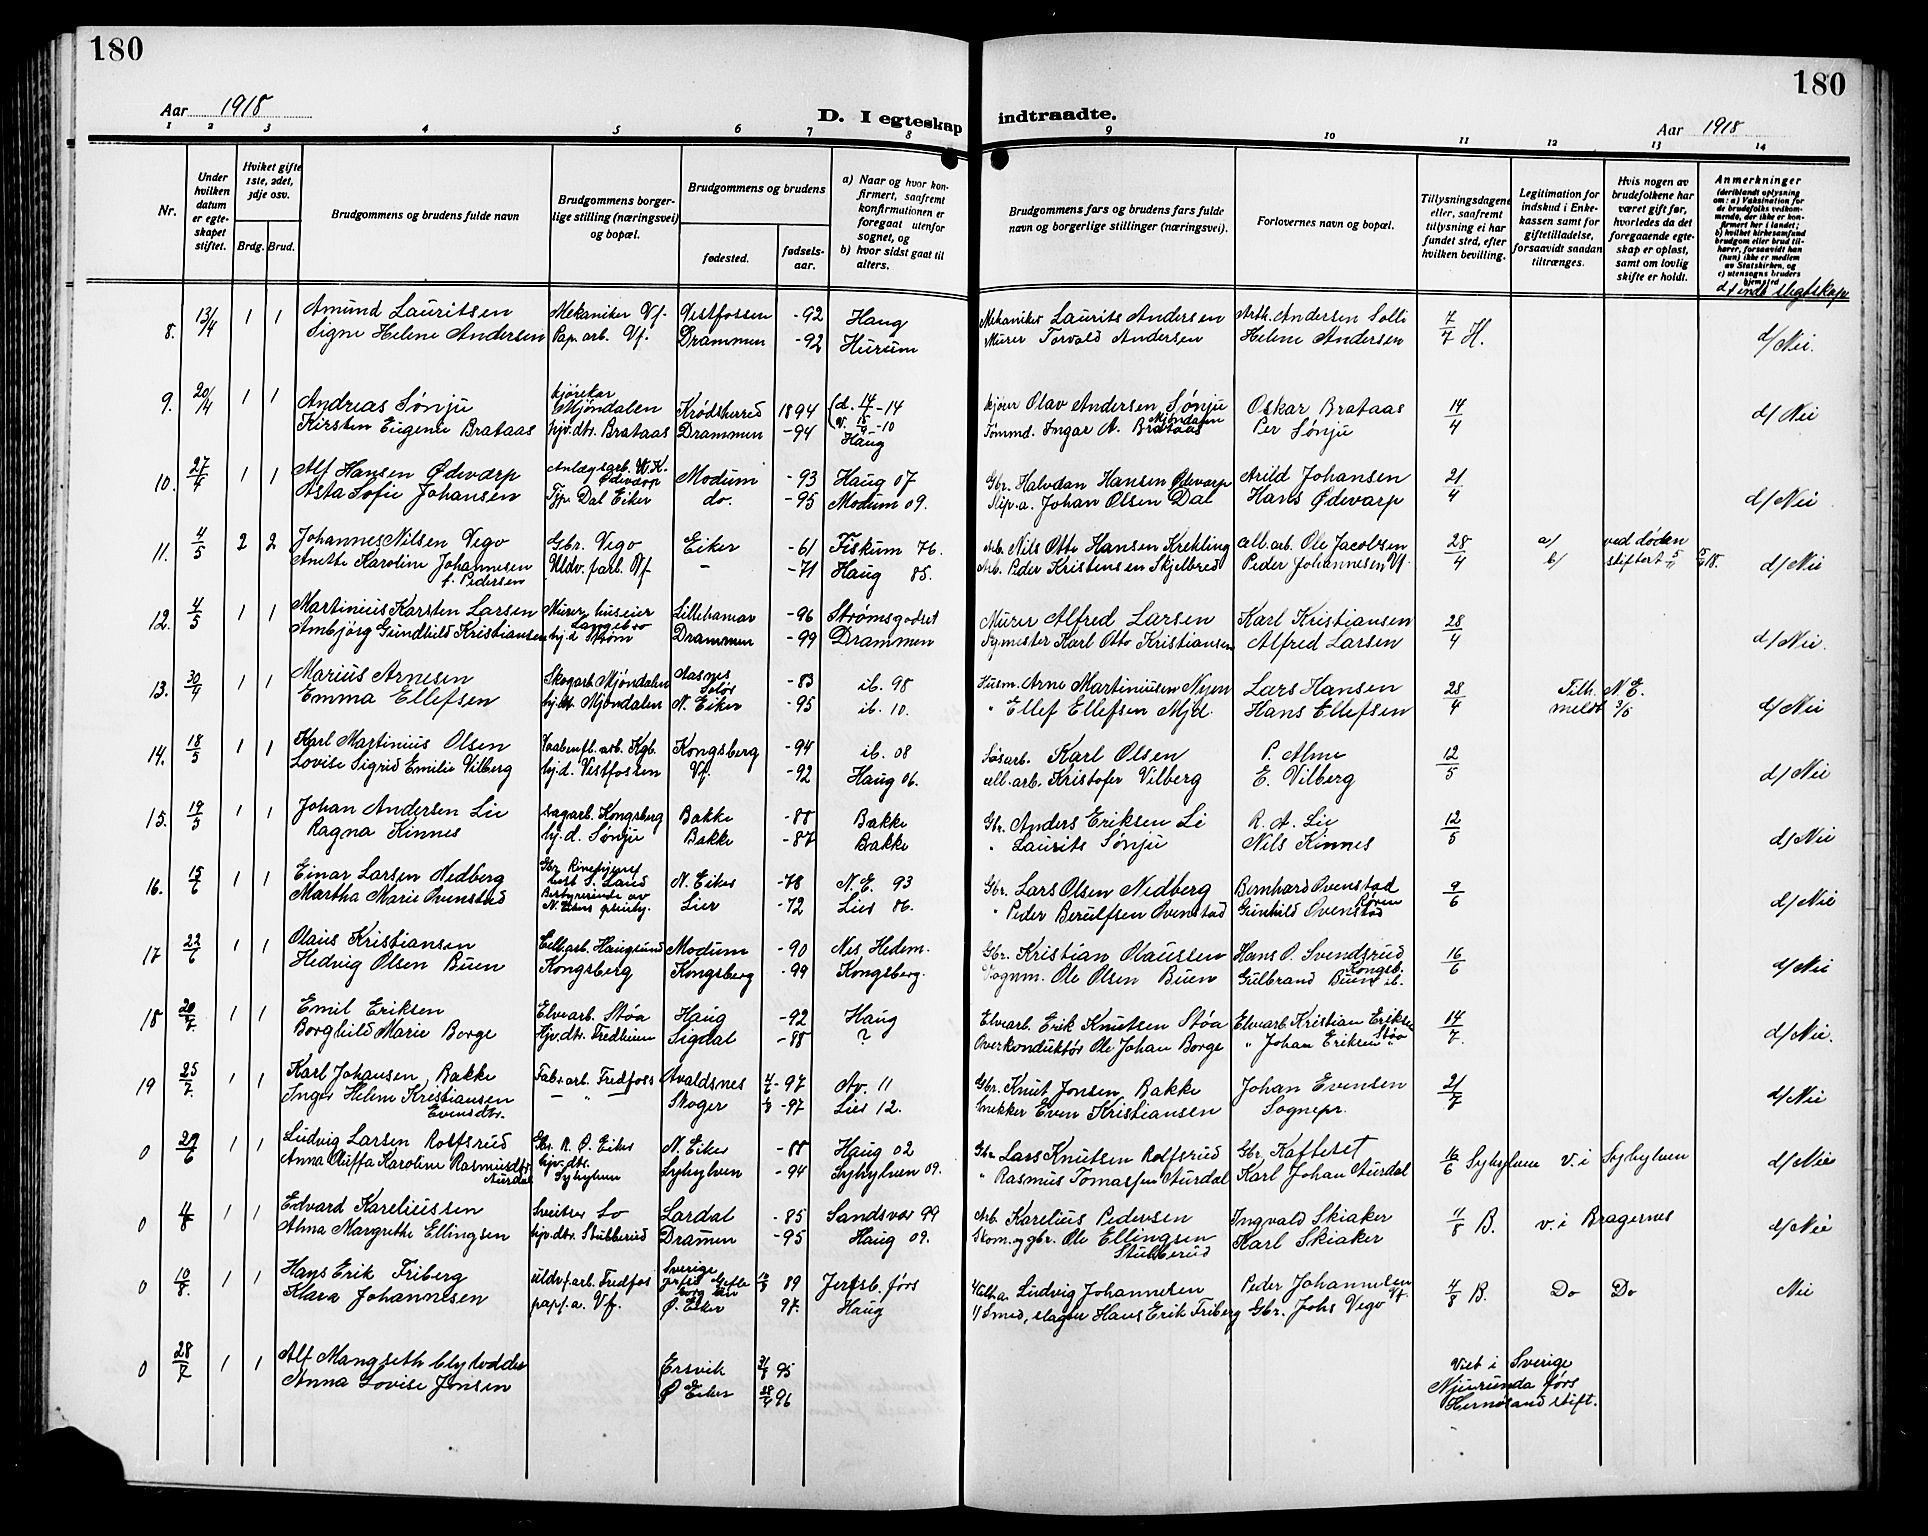 180
180
Aar 1918
D. I egteskap indtraadte.
Aar 1918
1 2 3 4 5 6 7 8 9 10 11 12 13 14
Nr.
Under hvilken datum er egteskapet stiftet.
Hvilket gifte 1ste, 2det, 3dje osv.
Brdg. Brud.
Brudgommens og brudens fulde navn
Brudgommens borgerlige stilling (næringsvei) og bopæl.
Brudgommens og brudens
fødested.
fødselsaar.
a) Naar og hvor konfirmert, saafremt konfirmationen er foregaat utenfor sognet, og
b) hvor sidst gaat til alters.
Brudgommens fars og brudens fars fulde navn og borgerlige stillinger (næringsvei).
Forlovernes navn og bopæl.
Tillysningsdagene eller, saafremt tillysning ei har fundet sted, efter hvilken bevilling.
Legitimation for indskud i Enkekassen samt for giftetilladelse, forsaavidt saadan tiltrænges.
Hvis nogen av brudefolkene har været gift før, hvorledes da det foregaaende egteskap er opløst, samt om lovlig skifte er holdt.
Anmerkninger (deriblandt oplysning om: a) Vaksination for de brudefolks vedkommende, der ikke er konfirmert her i landet; b) hvilket kirkesamfund brudgom eller brud tilhører, forsaavidt han (hun) ikke er medlem av Statskirken, og c) utensogns bruders hjemsted
d/ Slegtskap
8. 13/4 1 1 Amund Lauritsen Mekaniker Vf. Vestfossen -92 Haug Mekaniker Laurits Andersen Arth. Andersen Solli 7/7 H.
Signe Helene Andersen Pap. arb. Vf. Drammen -92 Hurum Murer Torvald Andersen Helene Andersen d/ Nei.
9. 20/4 1 1 Andreas Sønju kjørekar Mjøndalen Krødsherred 1894 Olav Andersen Sønju Mjøndalen Oskar Brataas 14/4 d/ Nei
Kirsten Eugenie Brataas hjv. dtr. Brataas Drammen -94 Haug Tømmd. Ingar A. Brataas Per Sønju
10. 27/4 1 1 Alf Hansen Ødevarp Anlægsarb. Ødevarp Modum -93 Haug 07 Gbr. Halvdan Hansen Ødevarp Arild Johansen 21/4
Asta Sofie Johansen Dal Eiker do. -95 Modum 09. Slip. a. Johan Olsen Dal Hans Ødevarp d/ Nei
11. 4/5 2 2 Johannes Nilsen Vego Gbr. Vego Eiker -61 Fiskum 76. Arb. Nils Otto Hansen Krekling Cell. arb. Ole Jacobsen 28/4 a/ ved døden
Anette Karoline Johannesen f. Pedersen Uldv. f. arb. Vf. - -71 Haug 85. Arb. Peder Kristensen Skjelbred Peder Johannesen Vf. b/ d/ Nei
12. 4/5 1 1 Martinius Karsten Larsen Murer huseier Langebro Lillehamar -96 Strømsgodset Murer Alfred Larsen Karl Kristiansen 28/4
Ambjørg Gundhild Kristiansen hj. d. Strøm Drammen -99 Drammen Karl Otto Kristiansen Alfred Larsen d/ Nei.
13. 30/4 1 1 Marius Arnesen Skogarb. Mjøndalen Aasnes Solør -83 ib. 98 Husm. Arne Martiniusen Lars Hansen 28/4 Tilh. N. E.
Emma Ellefsen hj. dt. Mjøndalen N. Eiker -95 ib. 10. " Ellef Ellefsen Mjd. Hans Ellefsen meldt 3/5 d/ Nei
14. 18/5 1 1 Karl Martinius Olsen Vaabenfb. arb. Kgb. Kongsberg -94 ib. 08 Karl Olsen P. Alme 12/5
Lovise Sigrid Emilie Vilberg hj. d. Vestfossen Vf. -92 Haug 06. Cell. arb. Kristofer Vilberg E. Vilberg d/ Nei
15. 19/5 1 1 Johan Andersen Lie Sagarb. Kongsberg Bakke -88 Bakke Gbr. Anders Eriksen Li R. A. Lie 12/5
Ragna Kinnes hj. d. Sønju Bakke -87 Bakke " Laurits Sønju Nils Kinnes d/ Nei
16. 15/6 1 1 Einar Larsen Nedberg N. Eiker -78 N. E. 93 Gbr. Lars Olsen Nedberg Bernhard Ovenstad 9/6
Martha Marie Ovenstad Bestyrerinde av Lier -72 Lier 86. " Peder Berulfsen Ovenstad Gunhild Ovenstad d/ Nei
17 22/6 1 1 Olaus Kristiansen Cell. arb. Haugsund Modum -90 Nes Hedem. Gbr. Kristian Olaussen Hans O. Svendsrud 16/6
Hedvig Olsen Buen Kongsberg Kongsberg -99 Kongsberg. Vognm. Ole Olsen Buen Gulbrand Buen Kongsb. ib. d/ Nei
18 20/7 1 1 Emil Eriksen Elvearb. Støa Haug -92 Haug Elvearb. Erik Knutsen Støa Elvearb. Kristian Eriksen Støa 14/7.
Borghild Marie Borge Hjv. dtr. Fredheim Sigdal -88 ? Overkonduktør Ole Johan Borge " Johan Eriksen " d/ Nei.
19 25/7. 1 1 Karl Johansen Bakke Fabr. arb. Fredfoss Avaldsnes -97 Av. 11 Gbr. Knut Jonsen Bakke Johan Evensen 21/7
Inger Helene Kristiansen Evensdtr. — " — Skoger -97 Lier 12. Snekker Even Kristiansen Sognepr. d/ Nei
0 1 1 Ludvig Larsen Rolfsrud Gbr. Eiker N. Eiker -88 Haug 02 Gbr Lars Knutsen Rolfsrud Gbr. Kafteset 16/6 Sykylven v. i Sykylven d/ Nei
Anna Karoline Rasmusdtr. Aurdal hjv. dtr. Sykylven Sykylven -94 Sykylven 09. " Rasmus Tomassen Aurdal Karl Johan Aurdal
0 4/8 1 1 Edvard Kareliussen Sveitser Lo Lardal -85 Sandsvær 99 Arb. Karelius Pedersen Ingvald Skiaker 11/8 B. v. i Bragernes d/ Nei
Alma Margrethe Ellingsen hjv. dtr. Stubberud Dramen -95 Haug 09. Skom. og gbr. Ole Ellingsen Stubberud Karl Skiaker
0 10/8. 1 1 Hans Erik Friberg uldvf. arb. Fredfos Sverige 89 förs Ludvig Johannesen Peder Johannesen Vf. 4/8 B. Do Do Nei
Klara Johannesen papf. a. Vf. Ø. Eiker 97. Haug Smed, Hans Erik Friberg Gbr. Johs Vego
0 28/7 1 1 Alf Mangseth Ersvik 95 Viet i Sverige
Anna Lovise Jonsen Ø Eiker 96 Njurunda förs
Hernösand stift.